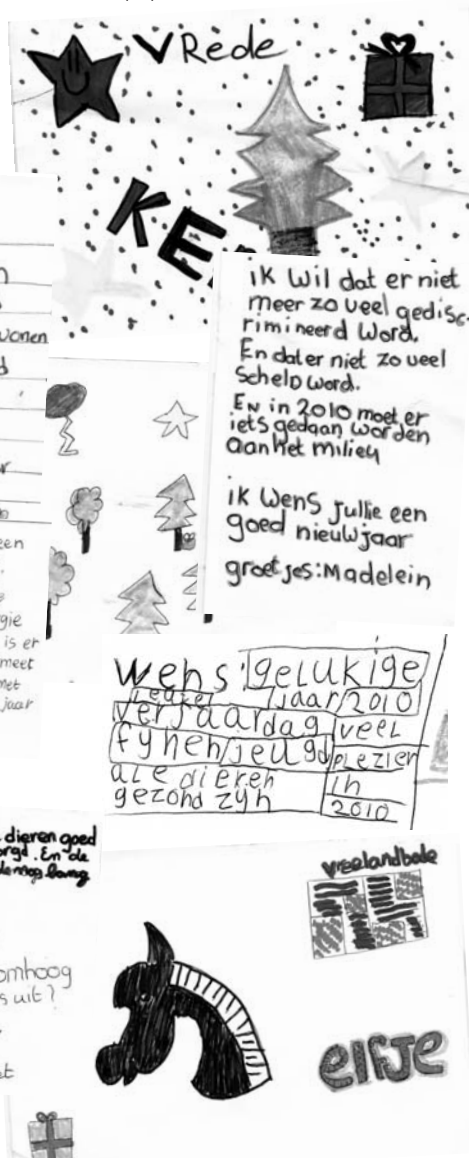 VRede
KE
iK Wil dat er niet
meer zo veel gedisc-
rimineerd Word.
En dat er niet zo veel
Scheld word.
EN in 2010 moet er
iets gedaan worden
aan het milieu
iK Wens Jullie een
goed nieuwjaar
groetjes: Madelein
wonen
een
gie
is er
meet
met
jaar
wens: gelukige
Leuke jaar 2010
verjaardag veel
fynen jeugd plezier
ale dieren in
gezond zyn 2010
dieren goed
orgd. En de
omhoog
s uit?
vreelandbode
elfje